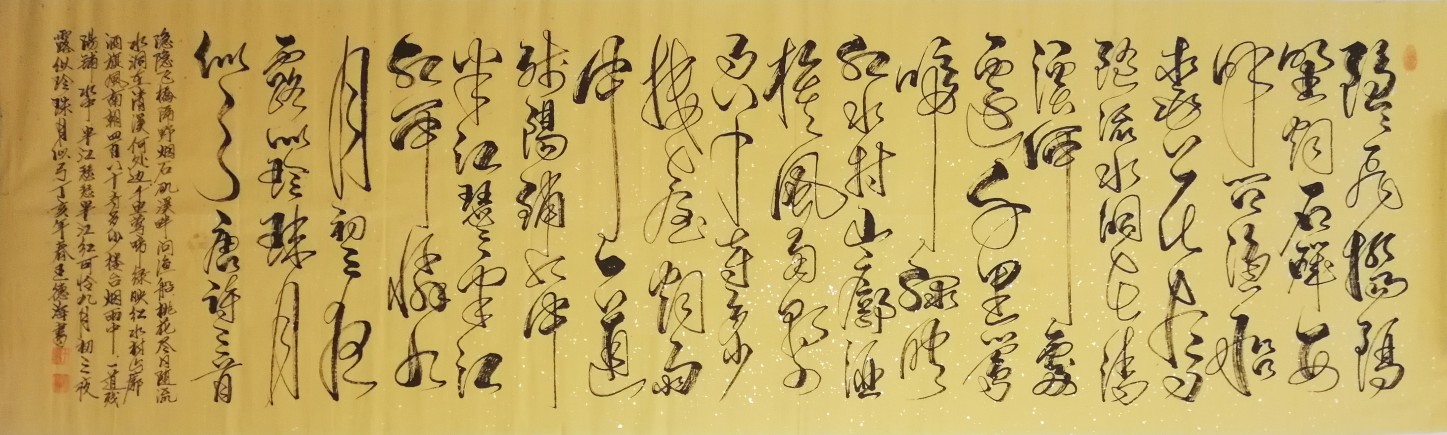 隐隐飛橋隔
野烟石磯西
畔问漁船
桃花尽日
随流水洞在清
溪何處
邊千里鶯
啼綠映
红水村山廓酒
旗風南朝四
百八十寺多少
楼台烟雨
中一道
残陽鋪水中
半江瑟瑟半江
红可憐九
月初三夜
露似珍珠月
似弓唐詩三首
隐隐飞橋隔野烟石矶溪畔问渔船桃花尽日随流
水洞在清溪何处边千里鶯啼綠映红水村山廓
酒旗風南朝四百八十寺多少楼台烟雨中一道残
陽鋪水中半江瑟瑟半江红可怜九月初三夜
露似珍珠月似弓丁亥年書